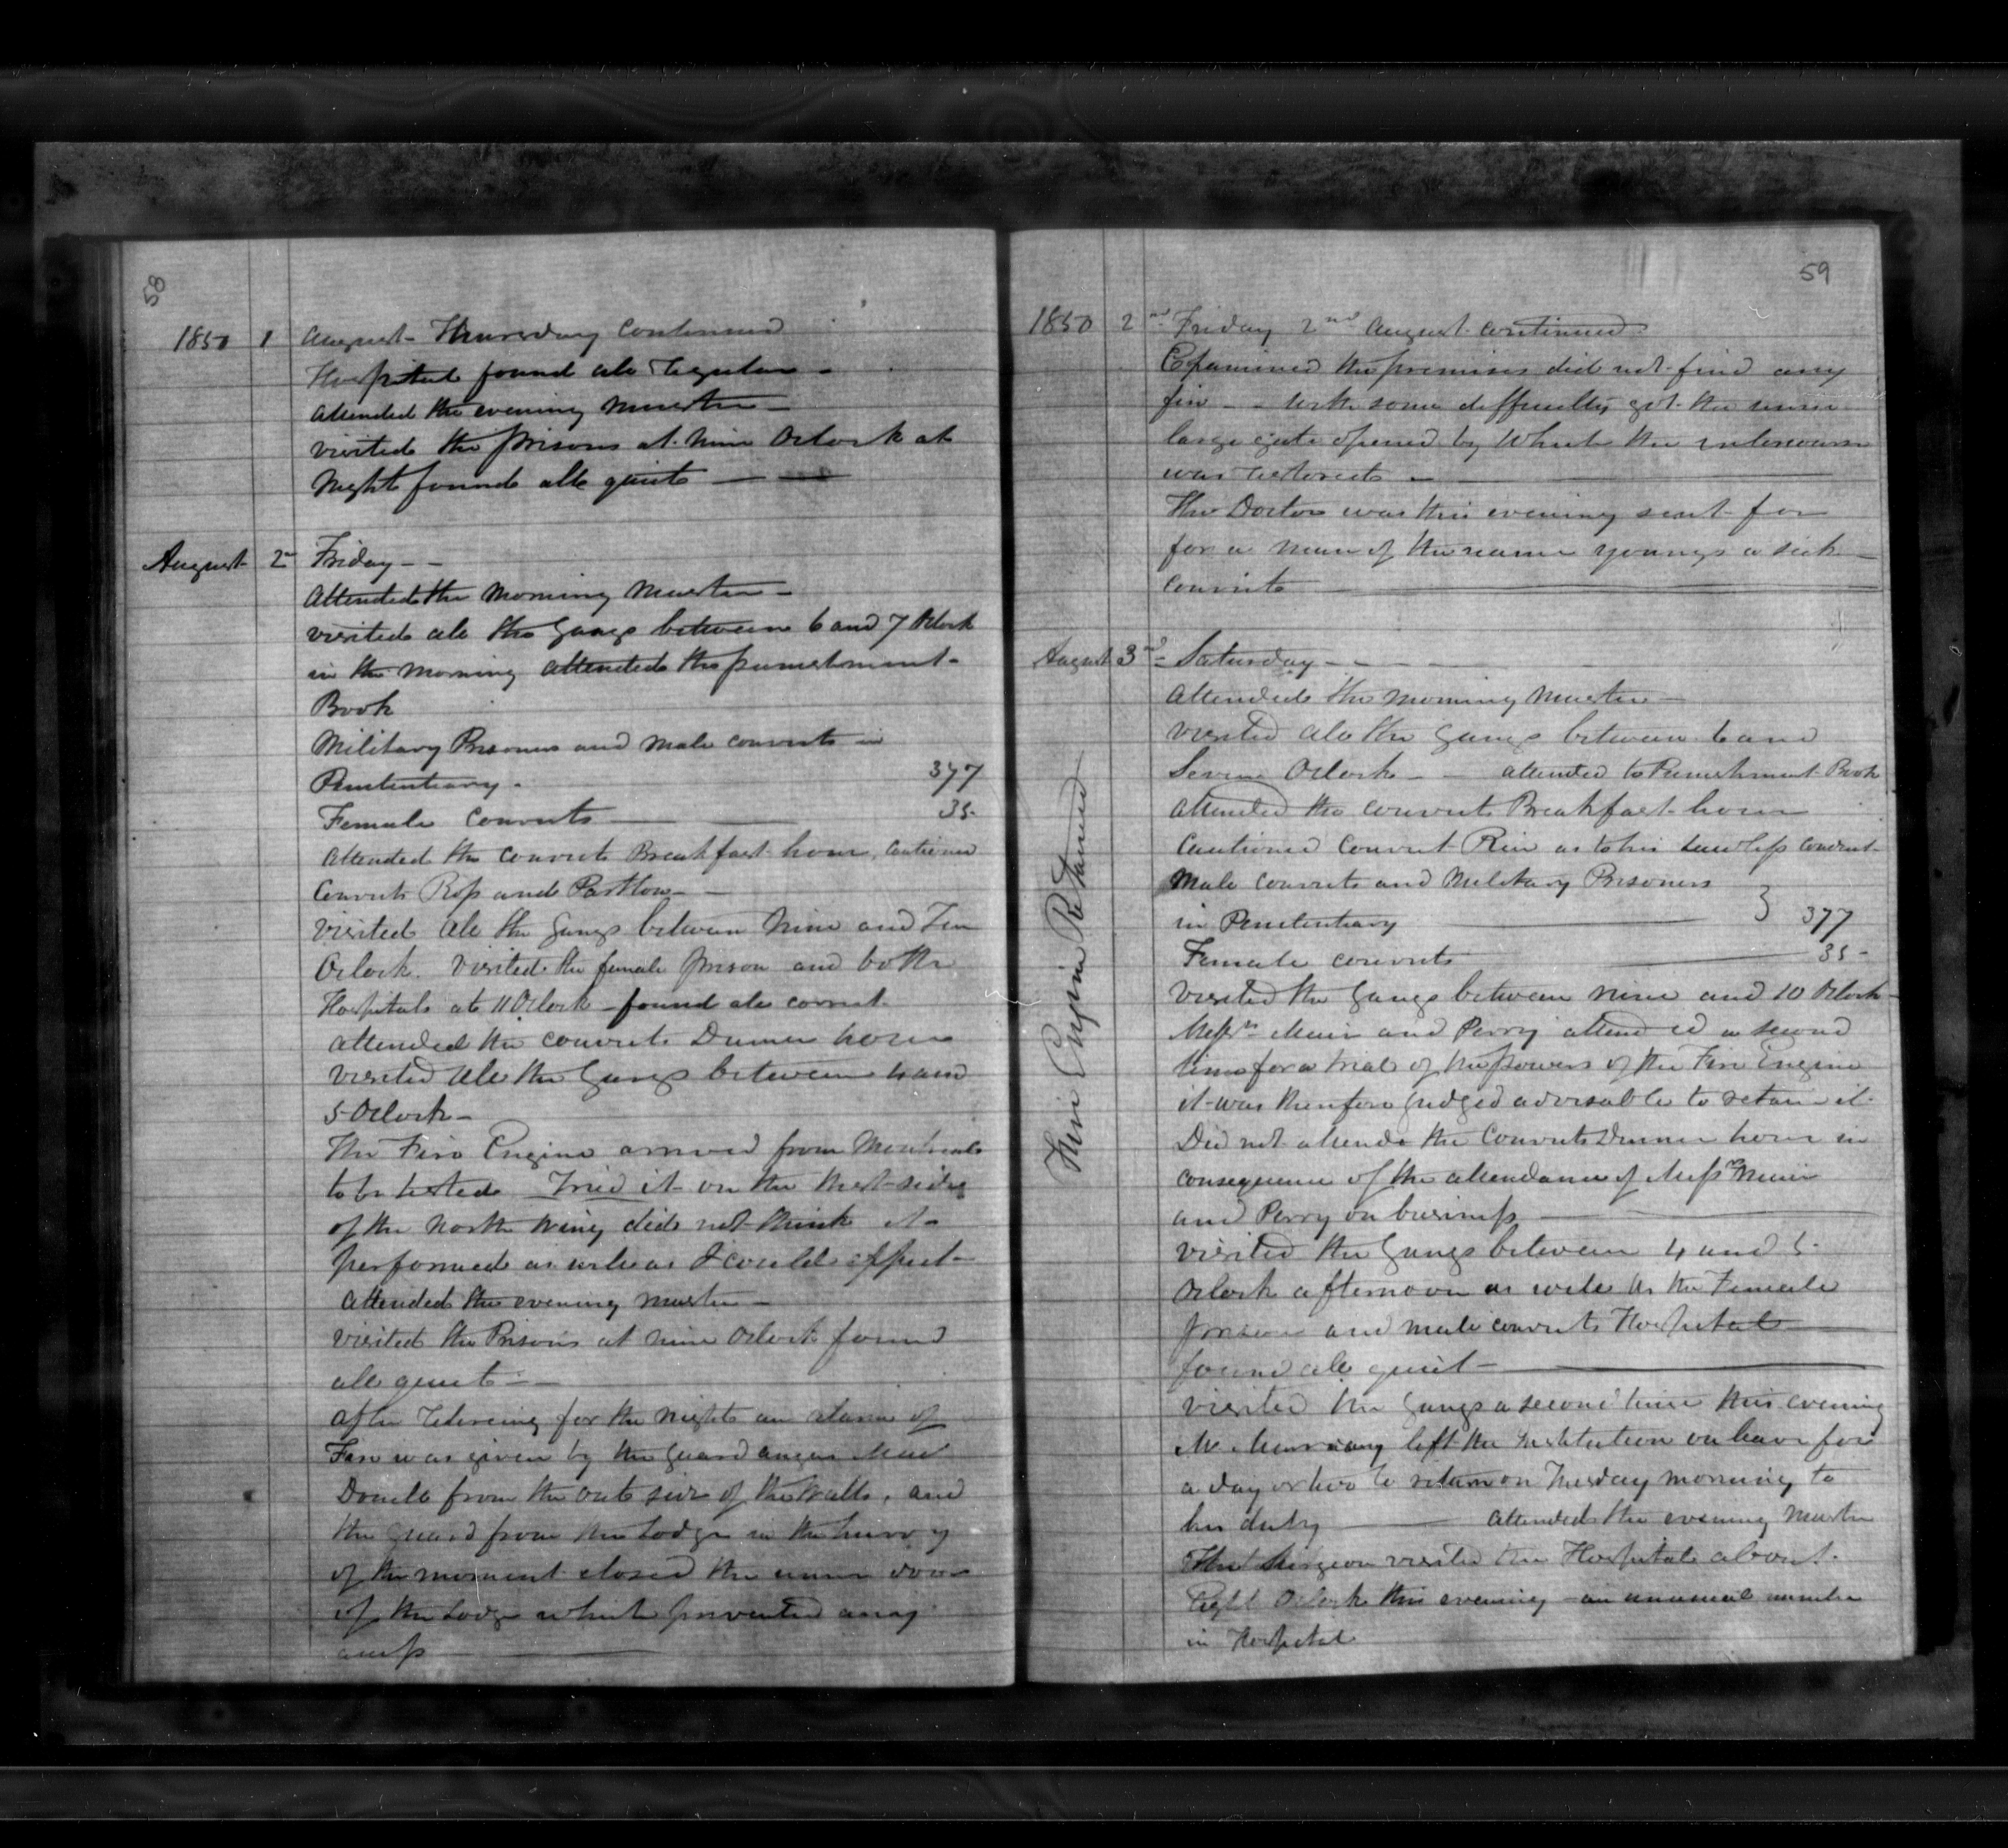 58
1850 1 August - Thursday continued
Hospital found all regular -
Attended the evening Muster -
visited the prisons at nine Oclock at
Night found all quiet -
August 2nd Friday - -
Attended the Morning Muster -
visited all the Gangs between 6 and 7 Oclock
in the morning attended the punishment -
Book
Military Prisoners and Male convicts in
Penitentiary - 377
Female Convicts 35 -
Attended the convicts Breakfast hour, Cautioned
Convicts Ross and Partlow -
visited all the Gangs between Nine and Ten
Oclock. Visited the female prison and both
Hospitals at 11 Oclock - found all correct -
attended the convicts Dinner hour
visited all the Gangs between 4 and
5 Oclock -
The Fire Engine arrived from Montreal
to be tested Tried it on the West side
of the North Wing did not think it
performed as well as I could expect -
Attended the evening muster -
visited the Prisons at nine Oclock found
all quiet - -
After retireing for the night an alarm of
Fire was given by the guard Angus Mac
Donell from the out side of the Walls, and
the guard from the Lodge in the hurry
of the moment closed the inner door
of the Lodge which prevented any
59
1850 2nd Friday 2nd August continued
Examined the premises did not find any
fire - - with some difficulty got the inner
large gate opened by which the intercourse
was restored -
The Doctor was this evening sent for
for a man of the name Youngs a sick
convict
August 3rd Saturday - - - -
attended the morning muster -
visited all the Gangs between 6 and
Seven Oclock - - attended to Punishment Book
attended the convicts Breakfast hour
Cautioned Convict as to his conduct -
Male convicts and Military Prisoners
in Penitentiary } 377
Female convicts 35 -
visited the Gangs between nine and 10 Oclock -
Messrs Muir and Perry attended a second
time for a trial of the powers of the Fire Engine
it was therefore judged advisable to retain it -
Did not attend the Convicts Dinner hour in
consequence of the attendance of Messrs Muir
and Perry on business
visited the Gangs between 4 and 5 -
Oclock afternoon as well as the Female
prison and male convicts Hospital
found all quiet -
visited the Gangs a second time this evening
left the Institution on leave for
a day or two to return on Tuesday morning to
his duty attended the evening Muster
The Surgeon visited the Hospital about -
Eight Oclock this evening - an unusual number
in Hospital
Fire Engine Retained